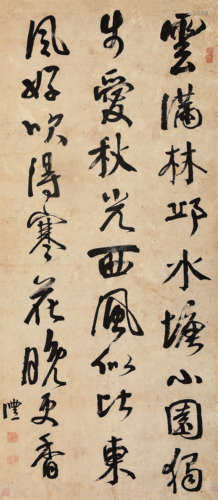 雲滿林邱水滿塘小園獨
步愛秋光西風似比東
風好吹得寒花晚更香
灃